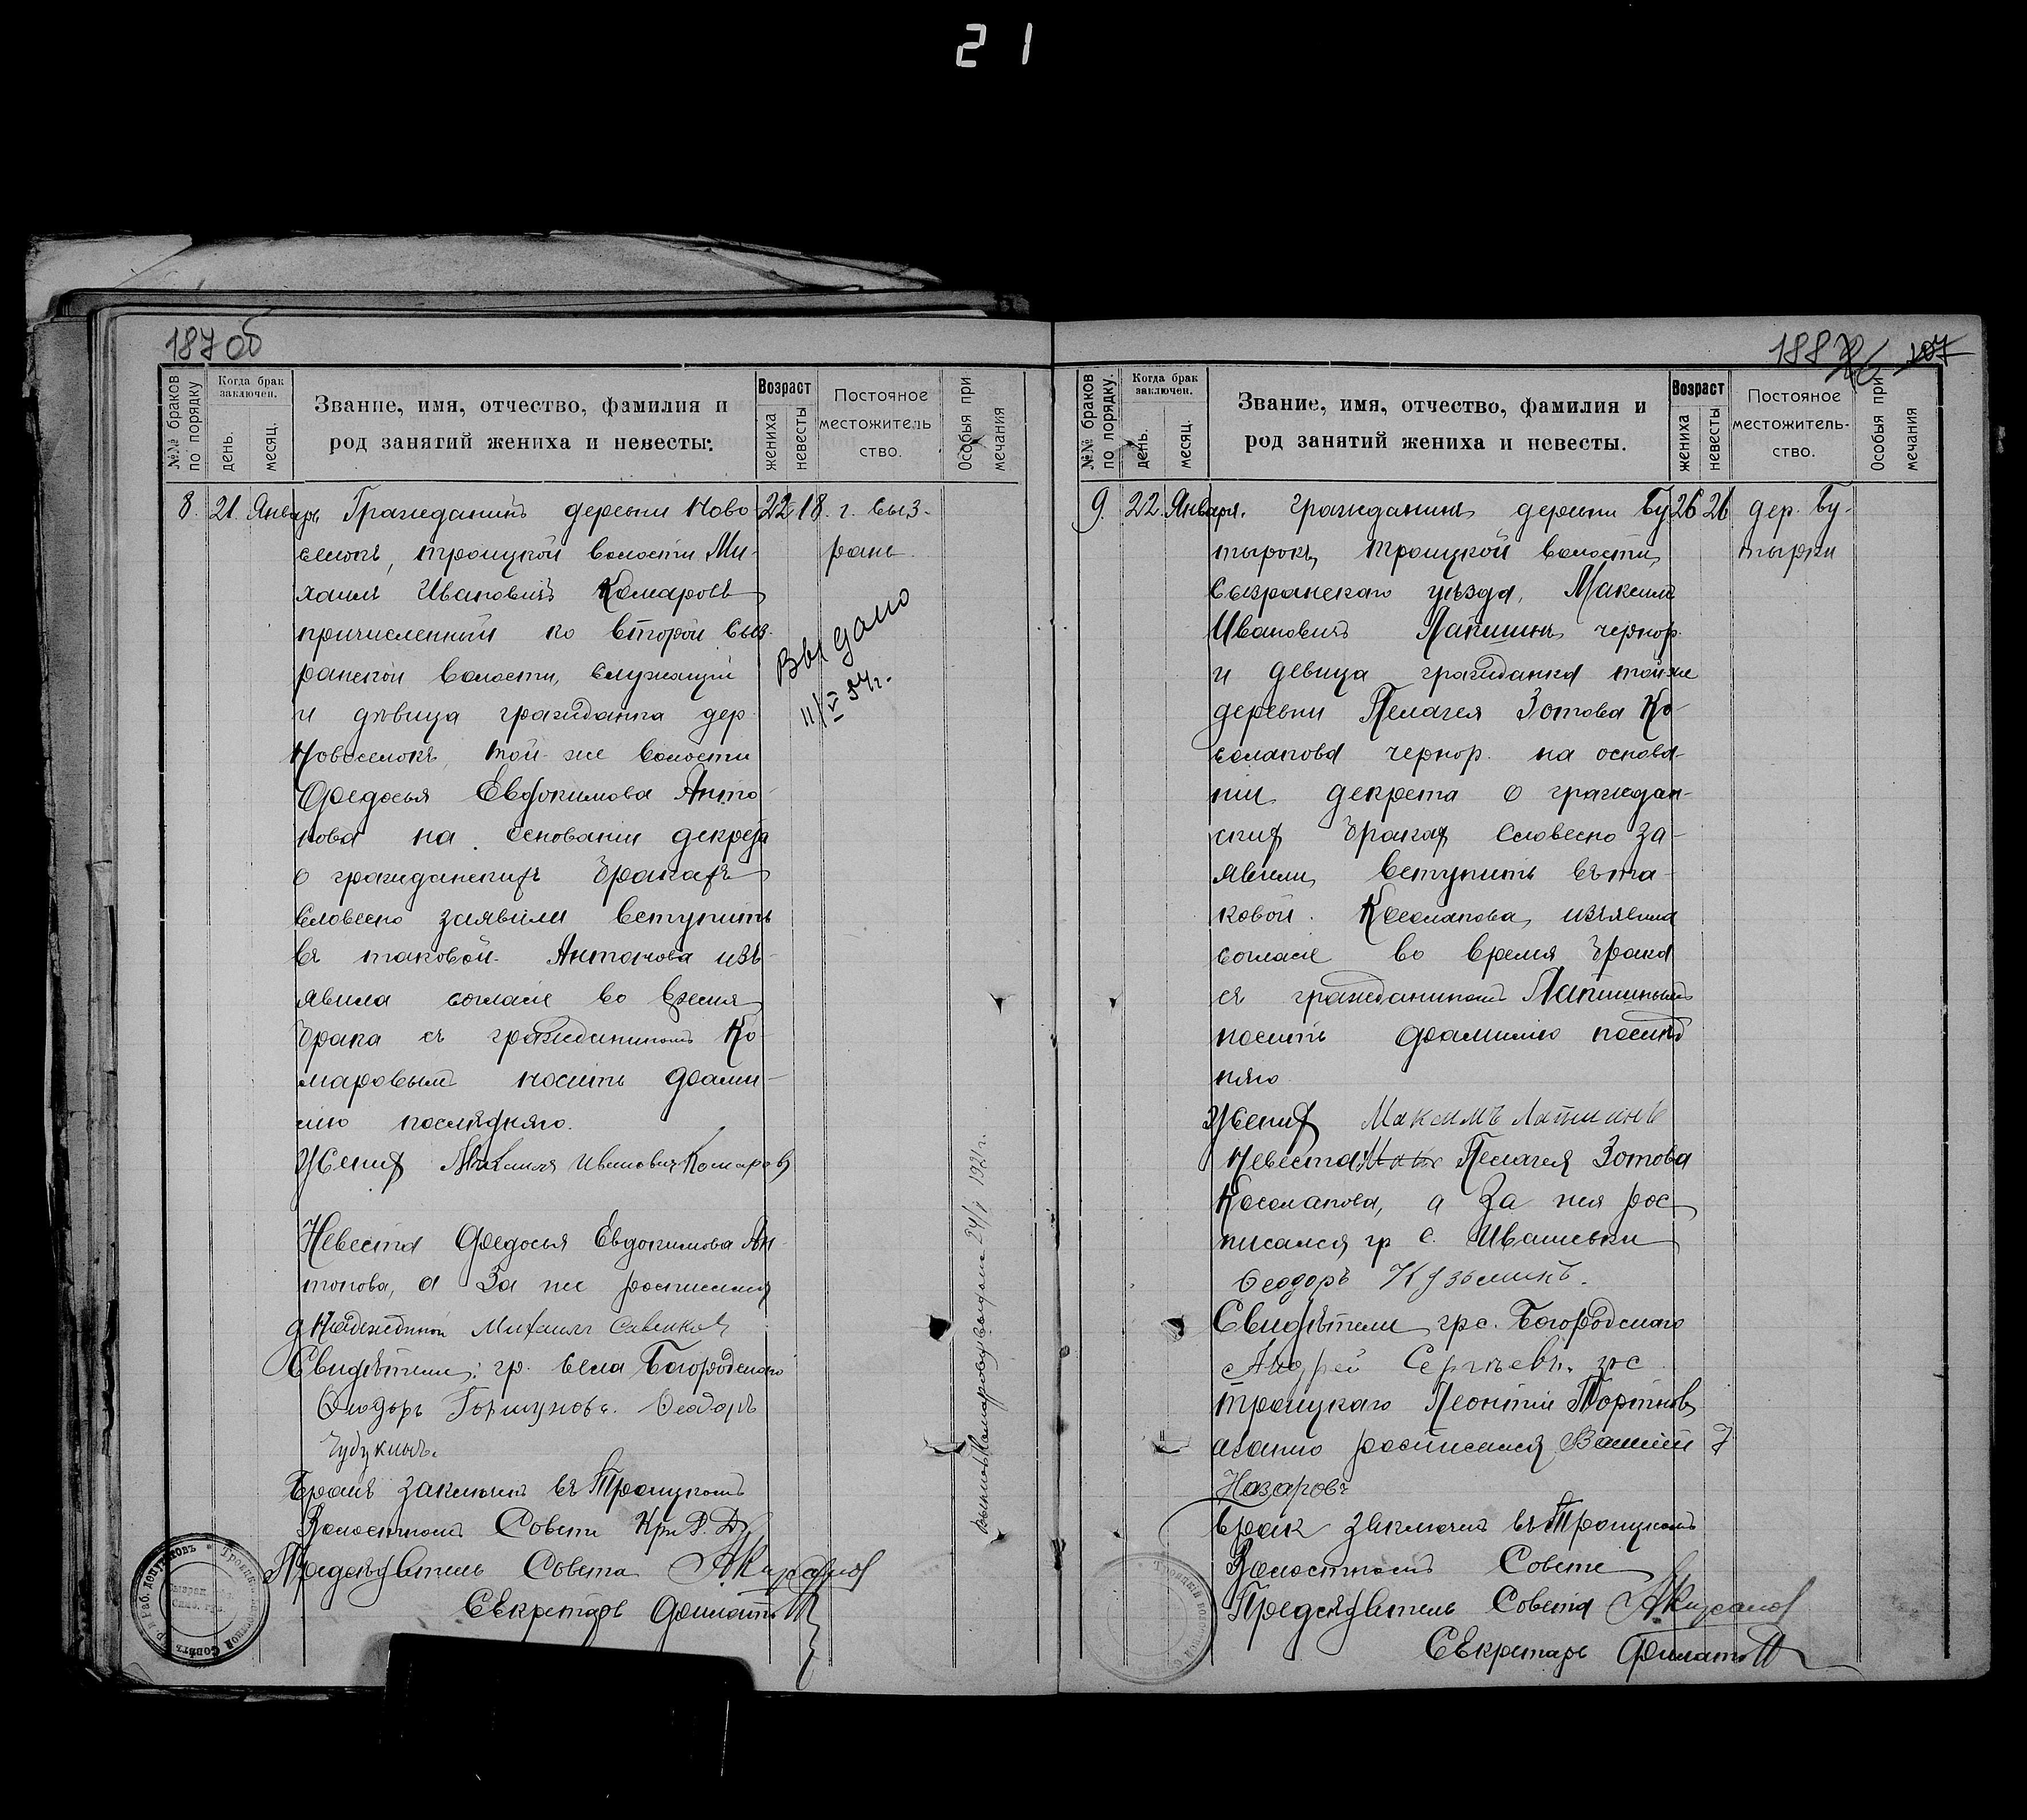 21
187 об
№№ браков по порядку
Когда брак заключен.
день.
месяц.
Звание, имя, отчество, фамилия и
род занятий жениха и невесты.
Возраст
жениха
невесты
Постояное
местожитель
ство.
Особыя при
мечания
8. 21. Январь Гражданинъ деревни Ново 22 18. г. Сыз-
селокъ, Троицкой волости Ми- рань.
хаилъ Ивановичъ Комаровъ
причисленный ко второй Сыз-
ранской волости, служащий
и девица гражданка дер.
Новоселокъ, той-же волости
Федосья Евдокимова Анто-
нова на основании декрета
о гражданскихъ бракахъ
словесно заявили вступить
въ таковой. Антонова изъ-
явила согласие во время
брака съ гражданиномъ Ко-
маровымъ носить фами-
лию последняго.
Выдано
11/V 54г.
Жених Михаилъ Ивановичъ Комаровъ
Невеста Федосья Евдокимова Ан-
тонова, а за нее
Михаилъ Савенков
Свидетели: гр. села Богородского
Федоръ Горшуновъ. Феодоръ
Чубукинъ.
Бракъ заключенъ въ Троицкомъ
Волостномъ Совете Кр. Р. Д.
Председатель Совета
Секретарь Филатов
24/I 1921г.
188 107
№№ браков по порядку.
Когда брак заключен.
день.
месяц.
Звание, имя, отчество, фамилия и
род занятий жениха и невесты.
Возраст
жениха
невесты
Постояное
местожитель-
ство.
Особыя при
мечания
9. 22. Января. Гражданинъ деревни Бу- 26 26 дер. Бу-
тырокъ, Троицкой волости, тырки
Сызранскаго уезда, Максимъ
Ивановичъ Лапшинъ чернор.
и девица гражданка той же
деревни Пелагея Зотова Ко-
солапова чернор. на основа-
нии декрета о граждан-
ских браках словесно за-
явили вступить въ та-
ковой. Косолапова изъявила
согласие во время брака
съ гражданиномъ Лапшинымъ
носить фамилию послед
няго.
Жених Максимъ Лапшинъ
Невеста Пелагея Зотова
Косолапова, а за нея рос
писался гр с. Ивашевки
Феодоръ Кузьминъ.
Свидетели гр с. Богородскаго
Андрей Сергеевъ. гр с
Троицкаго Леонтий Портновъ
росписался Василий
Назаровъ
Брак заключенъ въ Троицкомъ
Волостномъ Совете
Председатель Совета
Секретарь Филатов